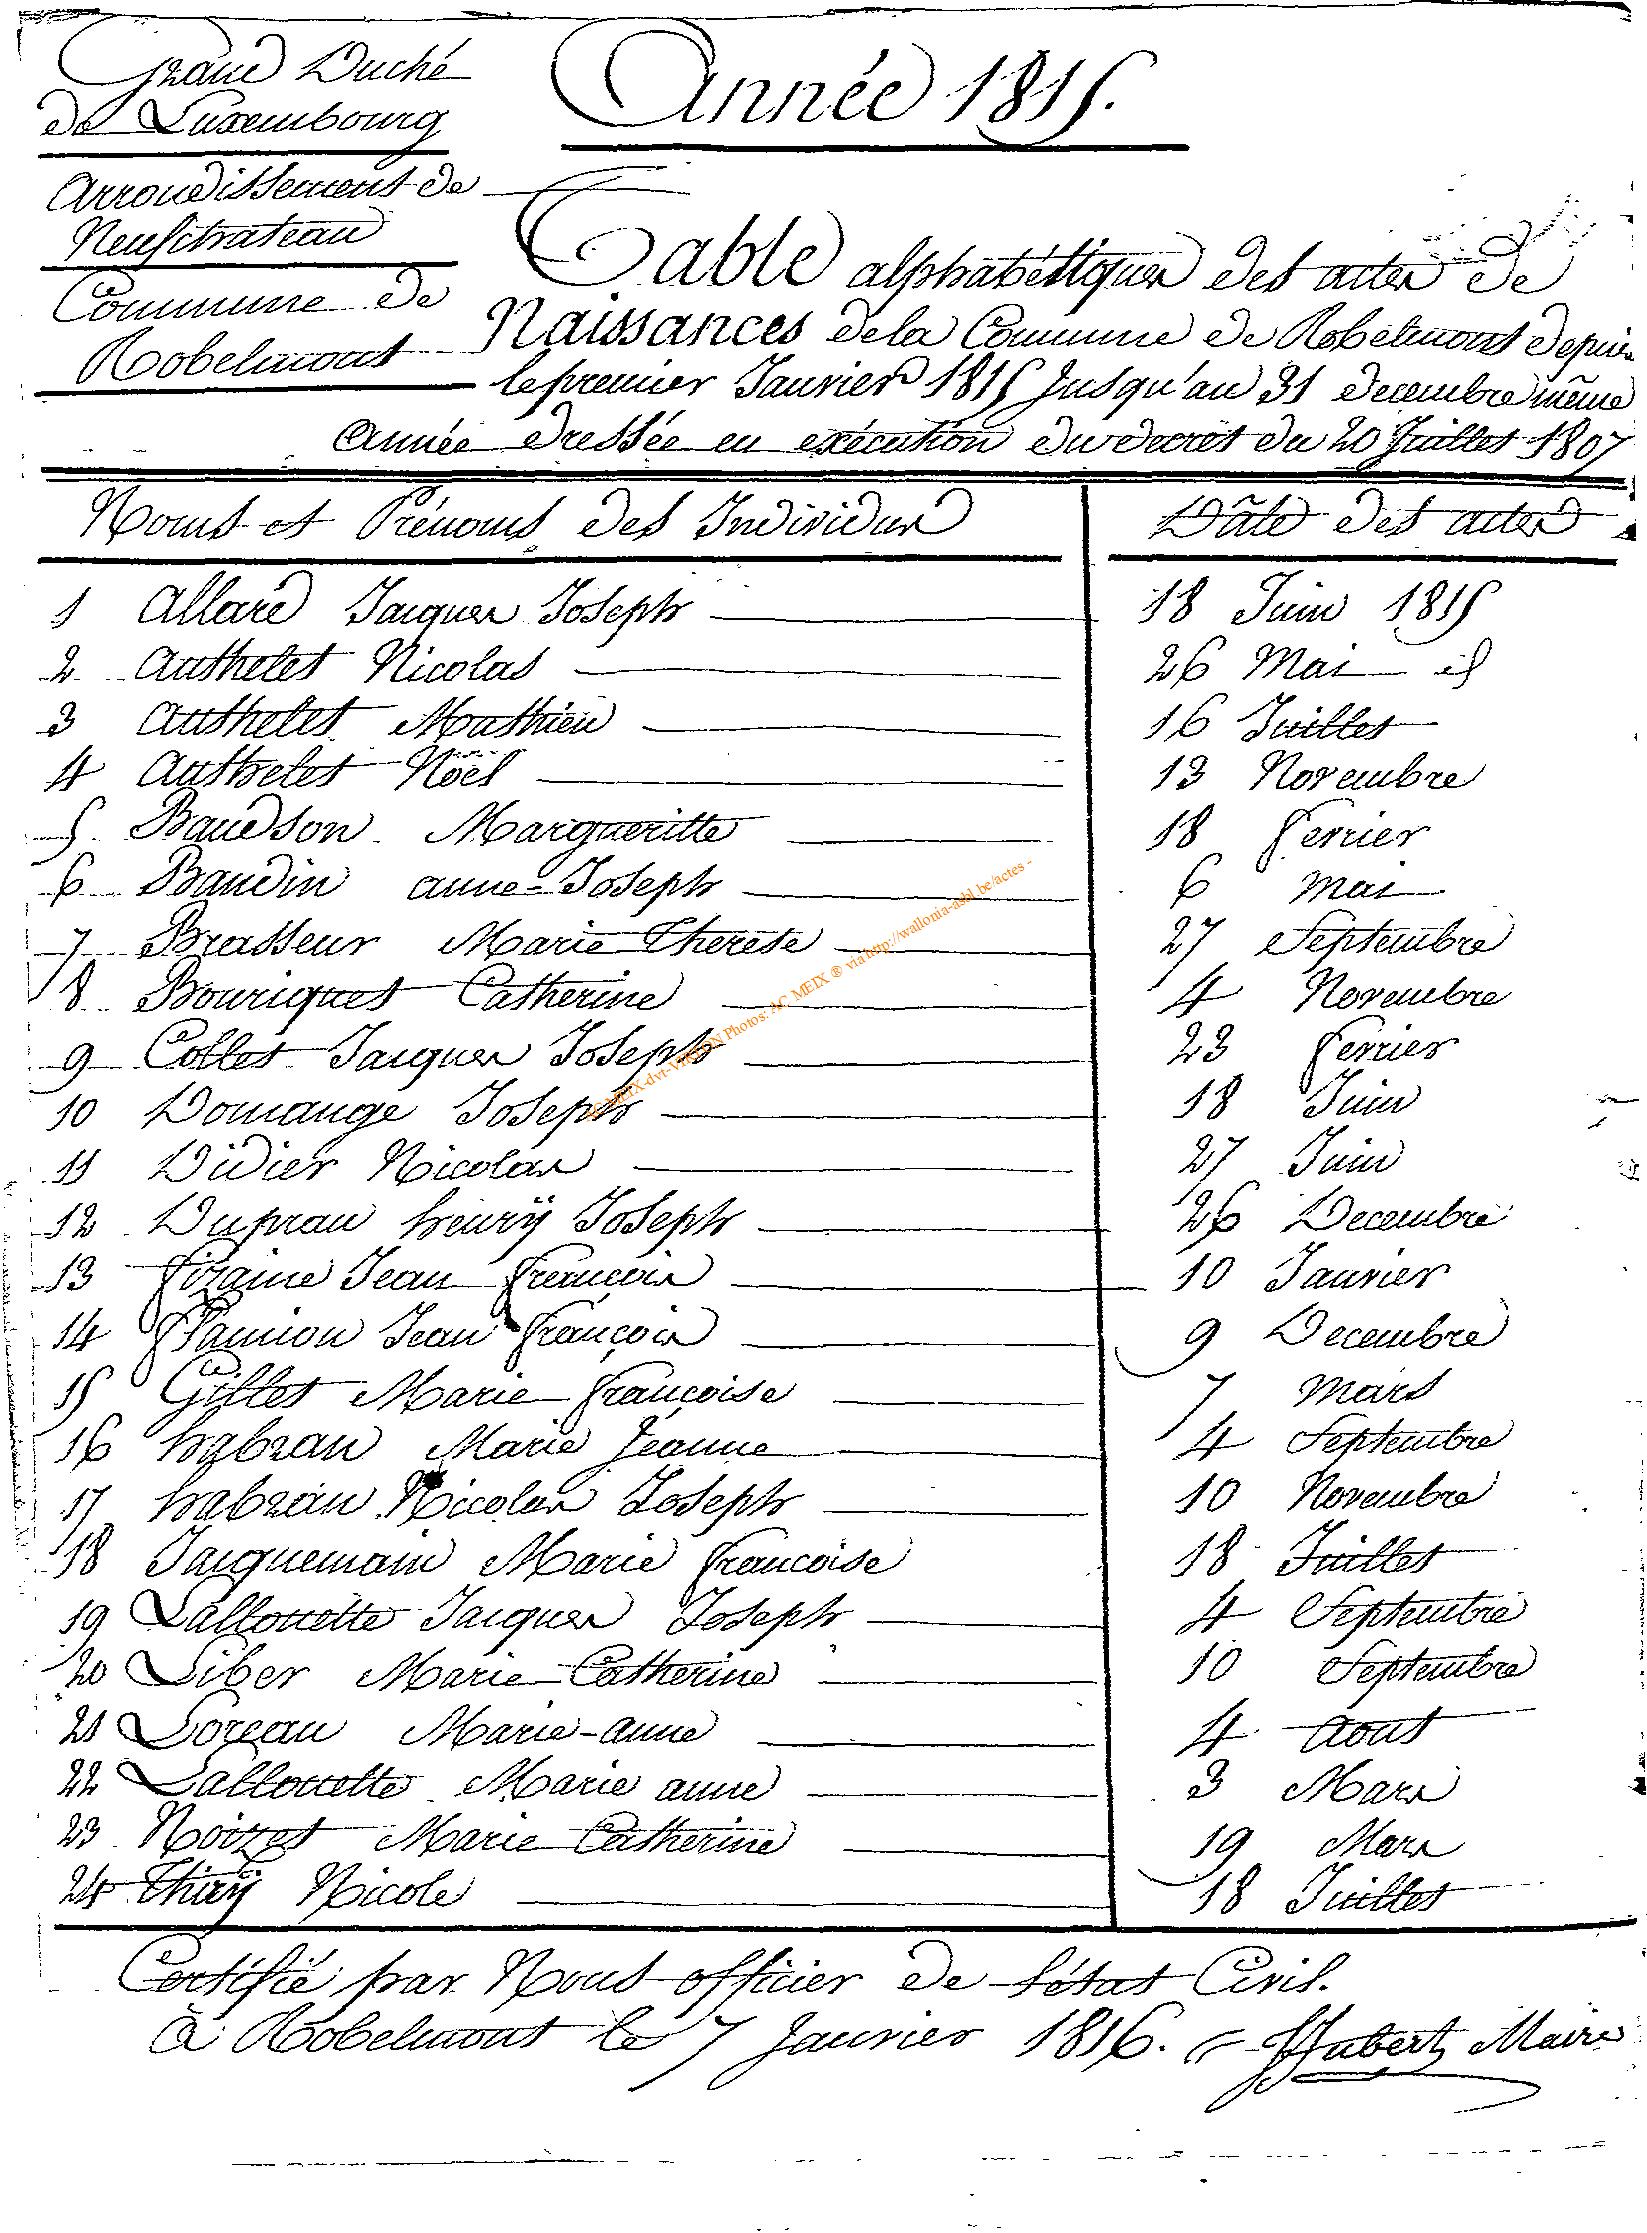 Grand Duché
de Luxembourg
Année 1815.
Arrondissement de
Neufchateau
Table alphabétiques des actes de
Commune de
Naissances de la Commune de Robelmont depuis
Robelmont
le premier Janvier 1815 Jusqu'au 31 decembre même
année dressée en exécution du decret du 20 Juillet 1807
Noms et Prénoms des Individus Date des actes
1 Allard Jacques Joseph 18 Juin 1815
2 Authelet Nicolas 26 Mai id
3 Authelet Mathieu 16 Juillet
4 Authelet Noël 13 Novembre
5 Baudson Margueritte 18 fevrier
6 Baudin anne-Joseph 6 mai
7 Brasseur Marie Therese 27 Septembre
8 Bouriquet Catherine 4 Novembre
9 Collet Jacques Joseph 23 fevrier
10 Domange Joseph 18 Juin
11 Didier Nicolas 27 Juin
12 Duprau henry Joseph 26 Decembre
13 fizaine Jean francois 10 Janvier
14 Jean françois 9 Decembre
15 Gillet Marie françoise 7 mars
16 habran Marie Jeanne 4 Septembre
17 habran Nicolas Joseph 10 Novembre
18 Jacquemain Marie francoise 18 Juillet
19 Lallouette Jacques Joseph 4 Septembre
20 Liber Marie Catherine 10 Septembre
21 Loreau Marie-anne 4 aout
22 Lallouette Marie anne 3 Mars
23 Noizet Marie Catherine 19 Mars
24 Thiry Nicole 18 Juillet
Certifié par Nous officier de l'état Civil.
à Robelmont le 7 Janvier 1816. Hubert Maire
MEIX-dvt-VIRTON Photos: AC MEIX ® via http://wallonia-asbl.be/actes -